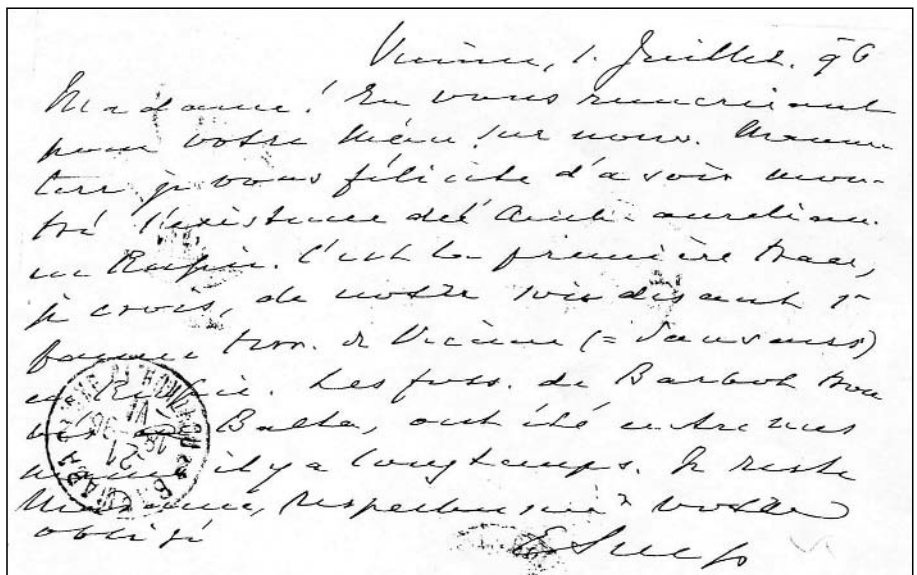 Vienne, 1. Juillet. 96
Madame! En vous remerciant
pour votre Mém. sur nouv.
terr. je vous félicite d'avoir mon-
tré l'existence de
en Russie. C'est la première trace,
je crois, de notre soi disant 1r
faune terr. de Vienne (= )
en Russie. Les foss. de Barbot trou
vés Balta, ont été entre nos
mains il y a longtemps. Je reste
Madame, respectueusemt votre
obligé
E Suess